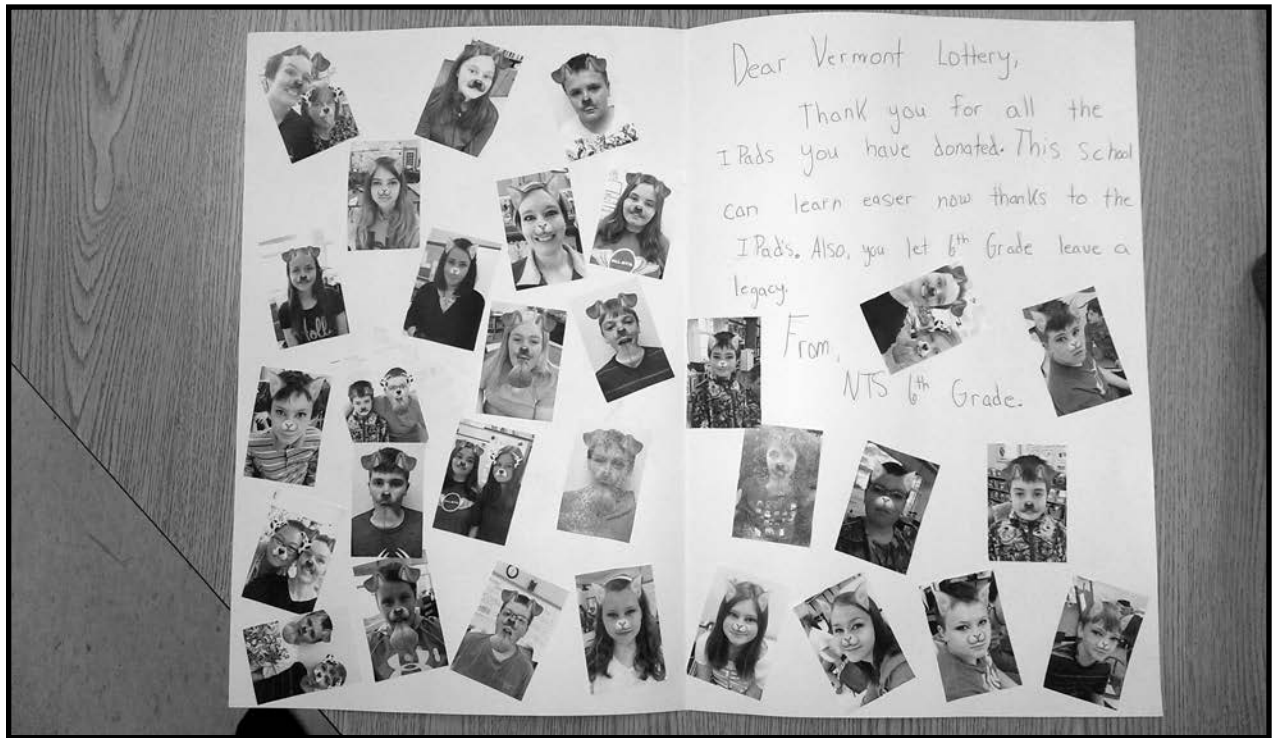 Dear Vermont Lottery,
Thank you for all the
I Pads you have donated. This school
can learn easier now thanks to the
I Pad's. Also, you let 6th Grade leave a
legacy.
From,
NTS 6th Grade.